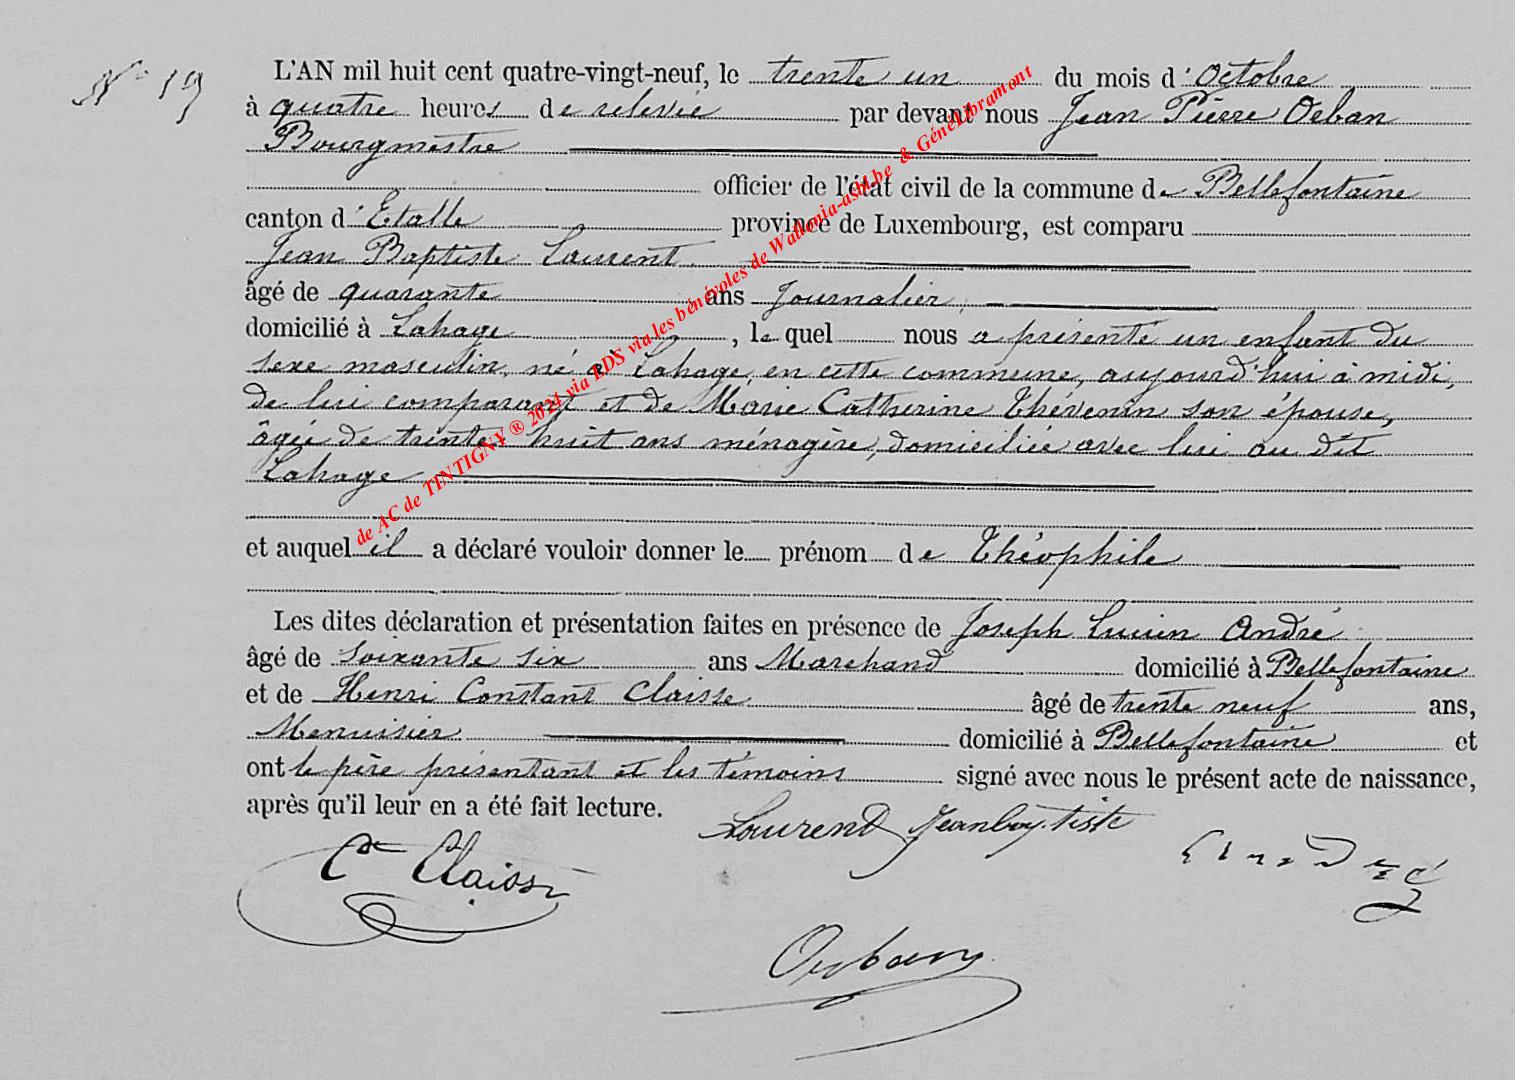 N° 19
L'AN mil huit cent quatre-vingt-neuf, le trente un du mois d'Octobre
à quatre heures de relevée par devant nous Jean Pierre Orban
Bourgmestre
officier de l'état civil de la commune de Bellefontaine
canton d'Etalle province de Luxembourg, est comparu
Jean Baptiste Laurent
âgé de quarante ans Journalier,
domicilié à Lahage, lequel nous a présenté un enfant du
sexe masculin, né à Lahage, en cette commune, aujourd'hui à midi,
de lui comparant et de Marie Catherine Thévenin son épouse,
âgée de trente huit ans ménagère, domiciliée avec lui au dit
Lahage
et auquel il a déclaré vouloir donner le prénom de Théophile
Les dites déclaration et présentation faites en présence de Joseph Lucien André
âgé de soixante six ans Marchand domicilié à Bellefontaine
et de Henri Constant Claisse âgé de trente neuf ans,
Menuisier domicilié à Bellefontaine et
ont le père présentant et les témoins signé avec nous le présent acte de naissance,
après qu'il leur en a été fait lecture.
Laurent Jeanbaptiste
Cn Claisse
Orban
de AC de TINTIGNY ® 2024 via BDS via les bénévoles de Wallonia-asbl.be & GéneLibramont